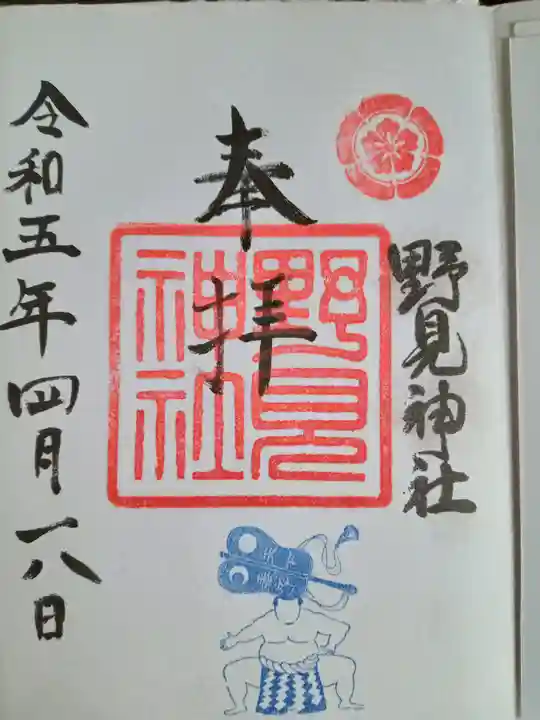 野見神社
奉拝
野見
神社
天下泰平
令和五年四月一八日